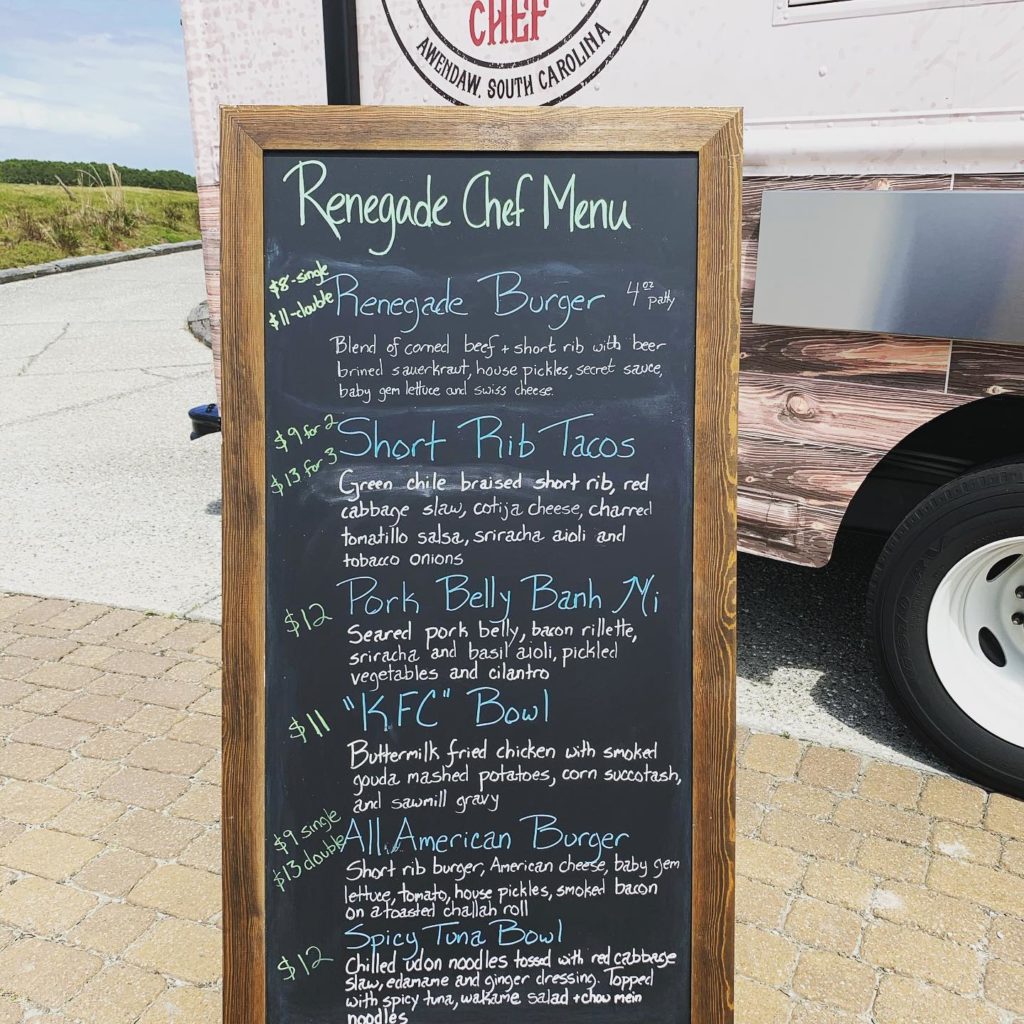 CHEF
AWENDAW, SOUTH CAROLINA
Renegade Chef Menu
$8-single
$11-double
Renegade Burger 4oz patty
Blend of corned beef + short rib with beer
brined sauerkraut, house pickles, secret sauce,
baby gem lettuce and swiss cheese.
$9 for 2
$13 for 3
Short Rib Tacos
Green chile braised short rib, red
cabbage slaw, cotija cheese, charred
tomatillo salsa, sriracha aioli and
tobacco onions
$12
Pork Belly Banh Mi
Seared pork belly, bacon rillette,
sriracha and basil aioli, pickled
vegetables and cilantro
$11
"KFC" Bowl
Buttermilk fried chicken with smoked
gouda mashed potatoes, corn succotash,
and sawmill gravy
$9 single
$13 double
All American Burger
Short rib burger, American cheese, baby gem
lettuce, tomato, house pickles, smoked bacon
on a toasted challah roll
$12
Spicy Tuna Bowl
Chilled udon noodles tossed with red cabbage
slaw, edamame and ginger dressing. Topped
with spicy tuna, wakame salad + chow mein
noodles